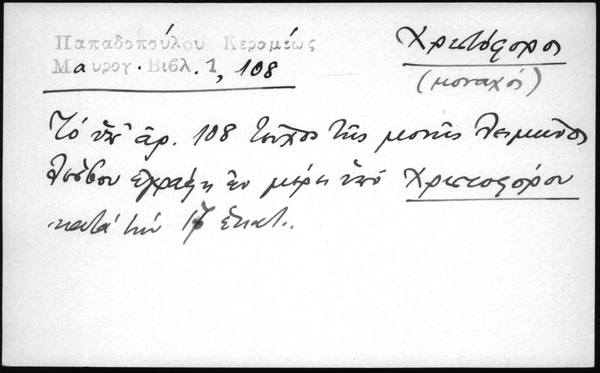 Παπαδοπούλου Κεραμέως
Μαυρογ. Βιβλ. 1, 108
Χριστόφορος
(μοναχός)
Τὸ ὑπ' ἀρ. 108 τεῦχος τῆς μονῆς Λειμῶνος
Λέσβου ἐγράφη ἐν μέρει ὑπὸ Χριστοφόρου
κατὰ τὴν ἑκατ..